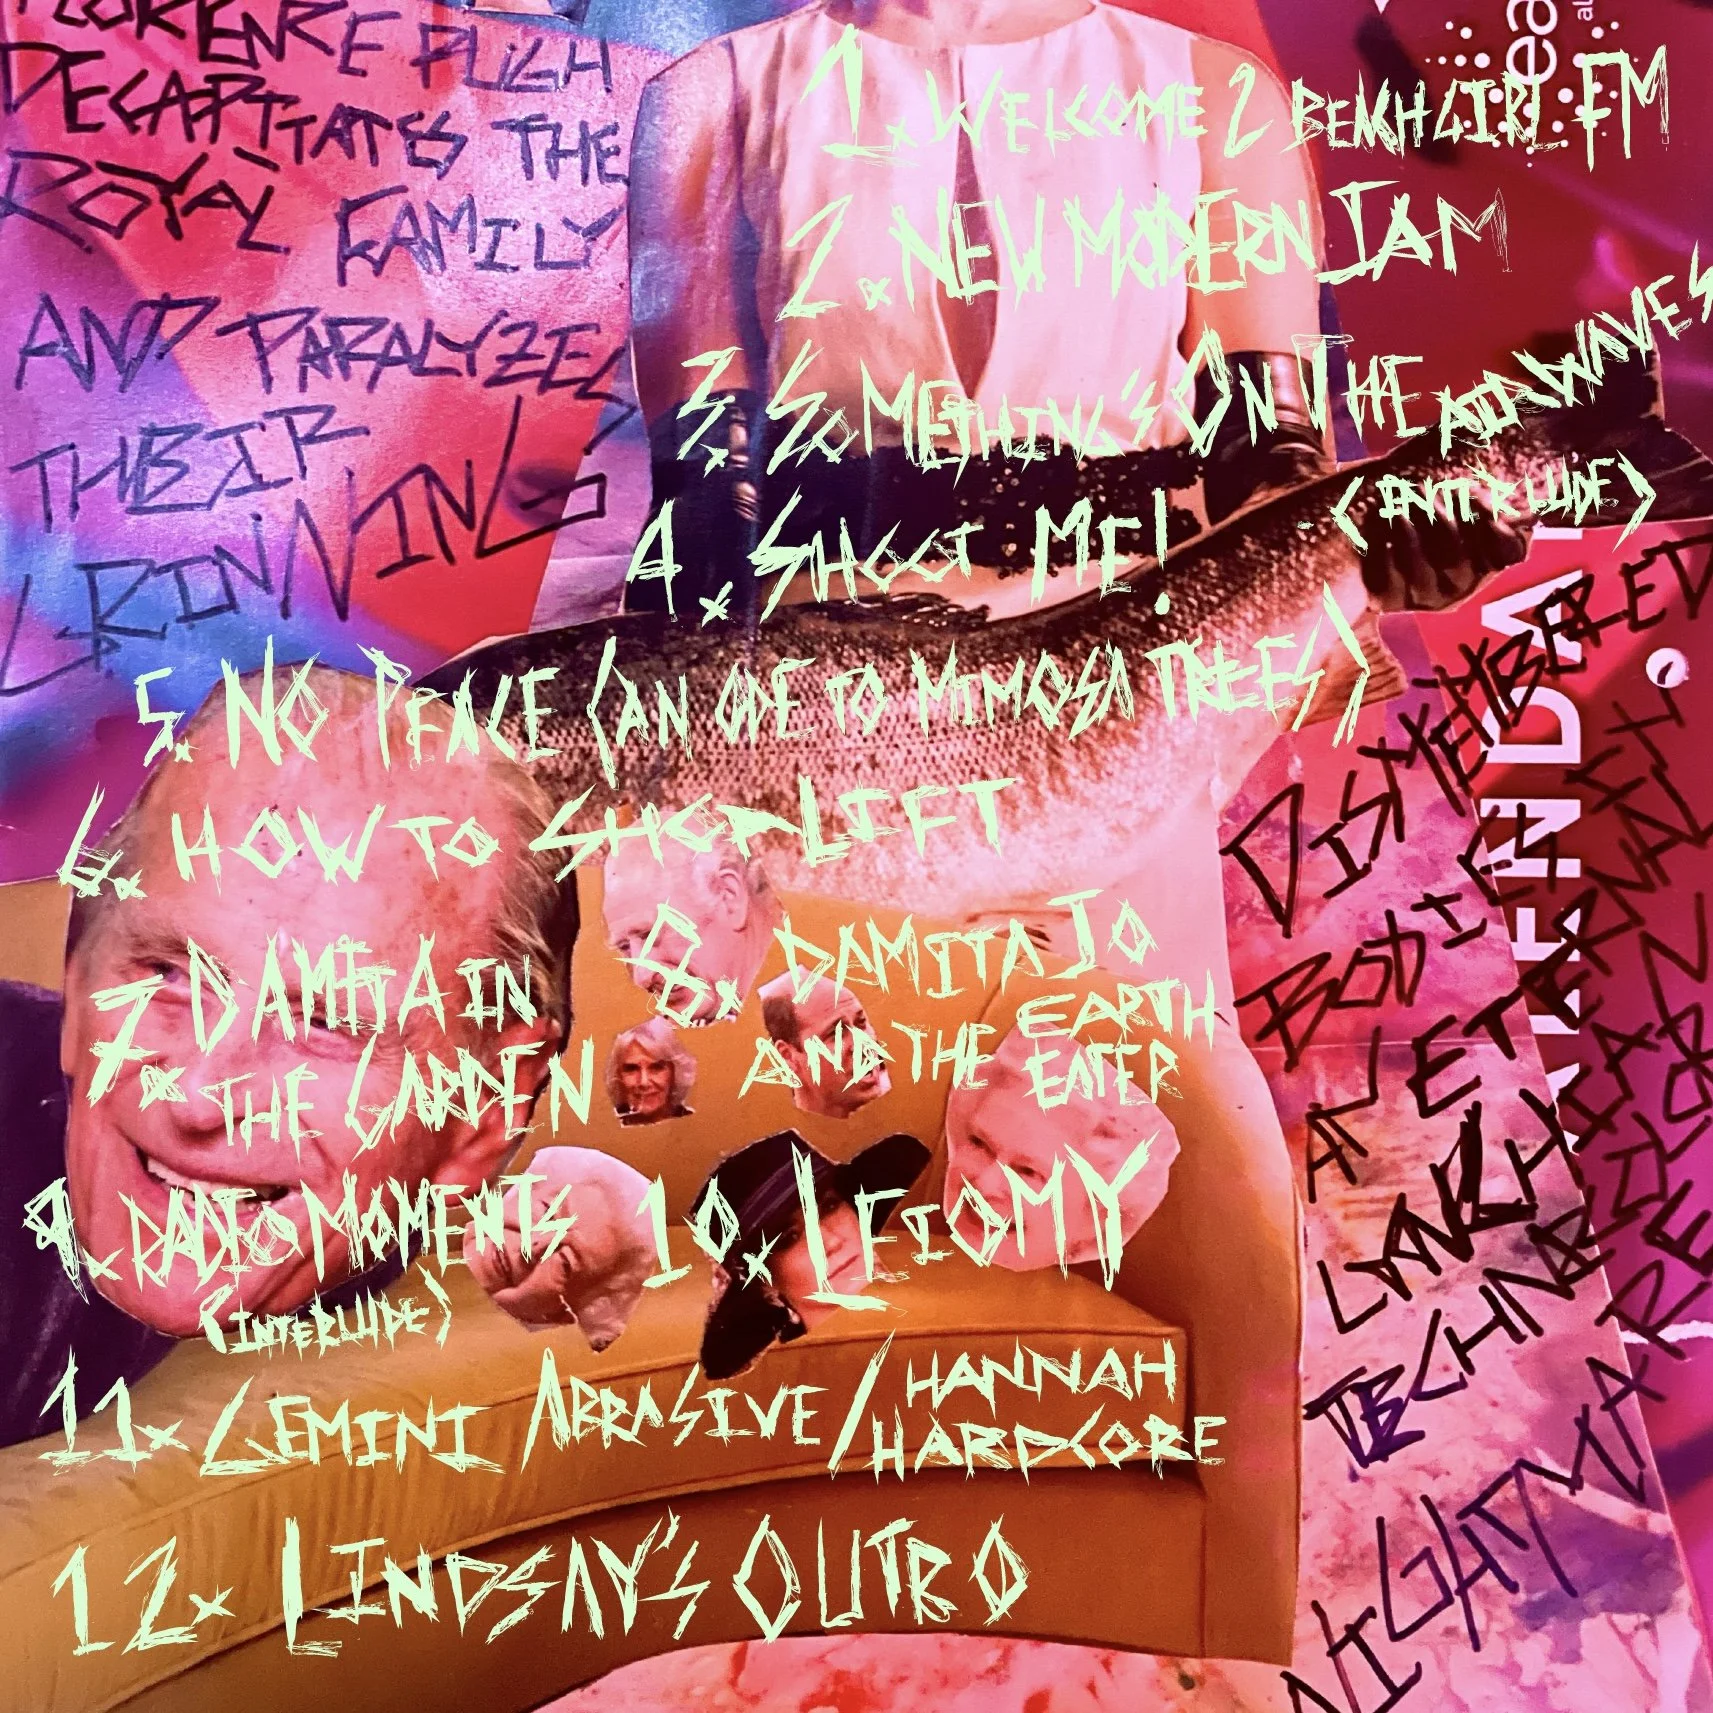 FLORENCE PUGH
DECAPITATES THE
ROYAL FAMILY
AND PARALYZES
THEIR
GRINNING
1. WELCOME 2 BENCHGIRL FM
2. NEW MODERN JAM
3. SOMETHING'S ON THE AIRWAVES
(INTERLUDE)
4. SHOOT ME!
5. NO PEACE (AN ODE TO MIMOSA TREES)
6. HOW TO SHOPLIFT
7. DAMITA IN
THE GARDEN
8. DAMITA JO
AND THE EARTH
EATER
9. RADIO MOMENTS
(INTERLUDE)
10. LEIOMY
11. GEMINI ABRASIVE/HANNAH
HARDCORE
12. LINDSAY'S OUTRO
DISMEMBERED
BODIES
ETERNAL
TECHNICOLOR
NIGHTMARE
ea